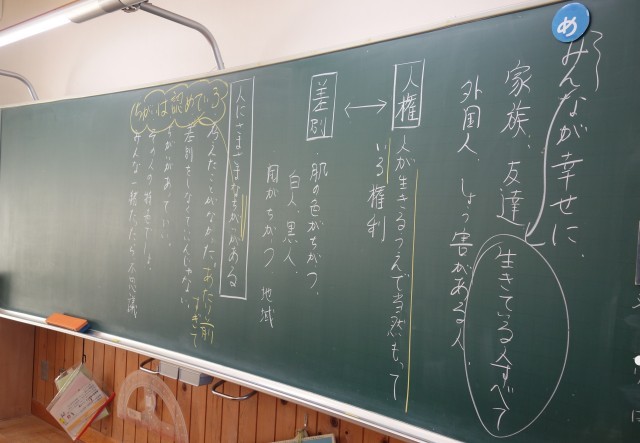 め
みんなが幸せに、
家族、友達
生きている人すべて
外国人、しょう害がある人
人権
人が生きるうえで当然もって
いる権利
差別
肌の色がちがう、
白人、黒人、
国がちがう、地域
人にさまざまなちがいがある
ちがいは認めている
考えたことがなかった、あたり前
すぎて
差別をしなくていいんじゃない。
ちがいがあっていい。
その人の
みんな一緒だったら不思議